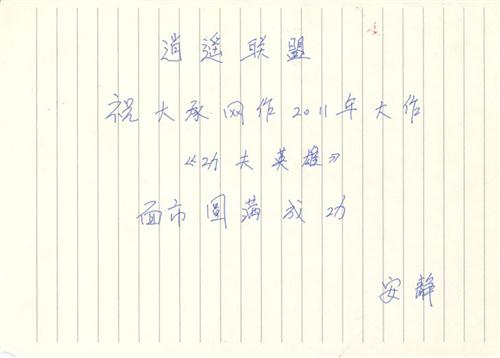 逍遥联盟
祝大承网作2011年大作
《功夫英雄》
面市圆满成功
安静